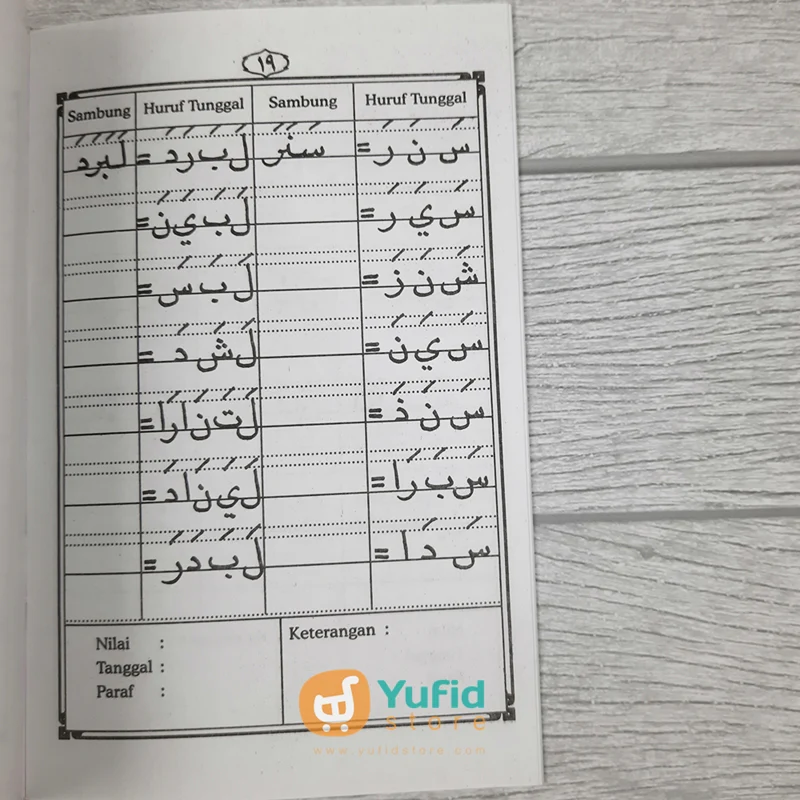 ١٩
Sambung Huruf Tunggal Sambung Huruf Tunggal
سَ نَ رَ = سَنَرَ لَ بَ رَ دَ = لَبَرَدَ
سَ يَ رَ = لَ بَ يَ نَ =
شَ نَ زَ = لَ بَ سَ =
سَ يَ نَ = لَ شَ دَ =
سَ نَ ذَ = لَ تَ نَا رَا =
سَ بَ رَا = لَ يَ نَا دَ =
سَ دَ ا = لَ بَ دَ رَ =
Nilai :
Tanggal :
Paraf :
Keterangan :
Yufid
store
www.yufidstore.com